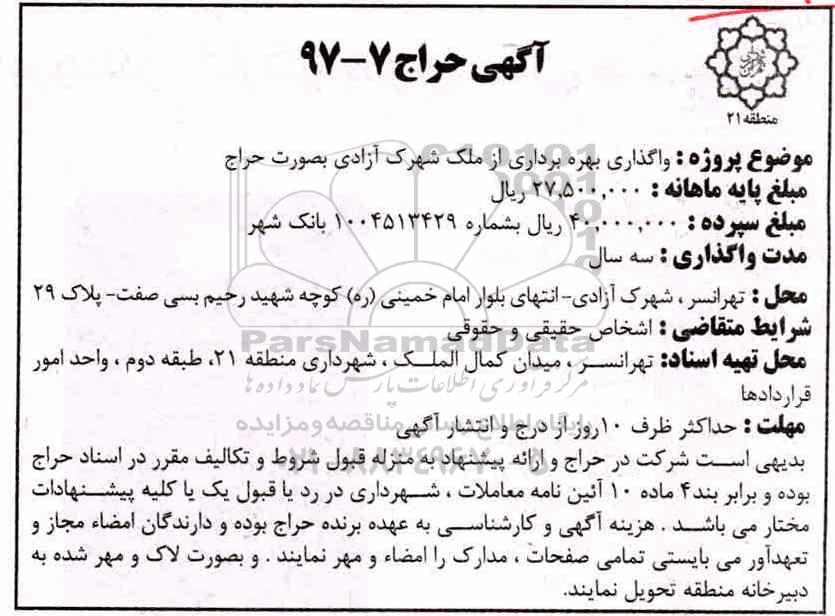 آگهی حراج ۷-۹۷
منطقه ۲۱
موضوع پروژه : واگذاری بهره برداری از ملک شهرک آزادی بصورت حراج
مبلغ پایه ماهانه : ۲۷,۵۰۰,۰۰۰ ریال
مبلغ سپرده : ۴۰,۰۰۰,۰۰۰ ریال بشماره ۱۰۰۴۵۱۳۴۲۹ بانک شهر
مدت واگذاری : سه سال
محل : تهرانسر ، شهرک آزادی- انتهای بلوار امام خمینی (ره) کوچه شهید رحیم بسی صفت- پلاک ۲۹
شرایط متقاضی : اشخاص حقیقی و حقوقی
ParsNamadData
محل تهیه اسناد: تهرانسر ، میدان کمال الملک ، شهرداری منطقه ۲۱، طبقه دوم ، واحد امور
مرکز فرآوری اطلاعات پارس نماد داده ها
قراردادها
پایگاه اطلاع رسانی مناقصه و مزایده
مهلت : حداکثر ظرف ۱۰روز از درج و انتشار آگهی
بدیهی است شرکت در حراج و ارائه پیشنهاد به منزله قبول شروط و تکالیف مقرر در اسناد حراج
بوده و برابر بند۴ ماده ۱۰ آئین نامه معاملات ، شهرداری در رد یا قبول یک یا کلیه پیشنهادات
مختار می باشد . هزینه آگهی و کارشناسی به عهده برنده حراج بوده و دارندگان امضاء مجاز و
تعهدآور می بایستی تمامی صفحات ، مدارک را امضاء و مهر نمایند . و بصورت لاک و مهر شده به
دبیرخانه منطقه تحویل نمایند.